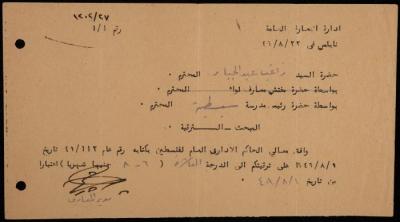 ١٢٠٢/٢٧
ادارة المعارف العامة
رقم ١/١
نابلس في ٢٢/٨/٤٦
حضرة السيد راغب عبد الجبار المحترم
بواسطة حضرة مفتش معارف لواء المحترم
بواسطة حضرة رئيس مدرسة سبسطية المحترم
المبحث - الترقية
وافق معالي الحاكم الاداري العام لفلسطين بكتابه رقم عام ٤٩/١١٢ تاريخ
٩/٨/ على ترقيتكم الى الدرجة (٦-٨ جنيها شهريا) اعتبارا
من تاريخ ١/٨/٤٩
مدير المعارف